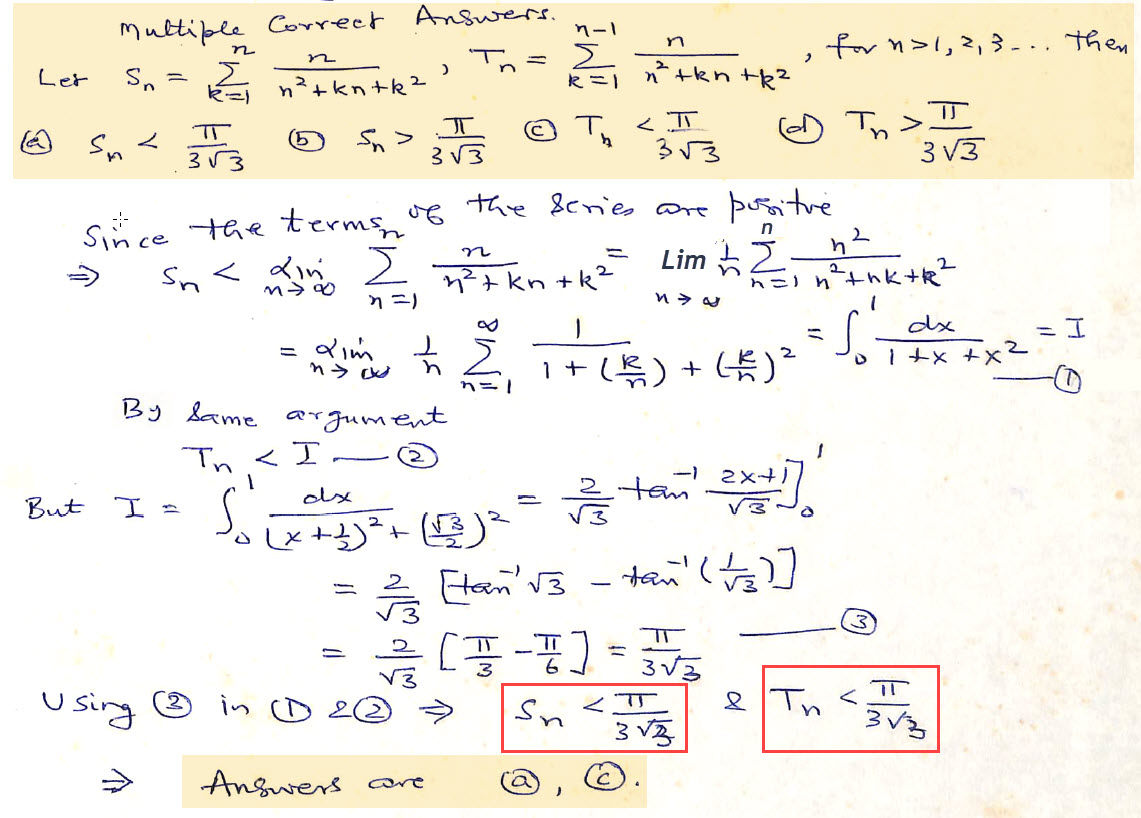 Multiple Correct Answers.
Let Sₙ = ∑ₖ₌₁ⁿ n/(n²+kn+k²) , Tₙ = ∑ₖ₌₁ⁿ⁻¹ n/(n²+kn+k²) , for n>1,2,3... Then
(a) Sₙ < π/(3√3) (b) Sₙ > π/(3√3) (c) Tₙ < π/(3√3) (d) Tₙ > π/(3√3)
Since the terms of the series are positive
⇒ Sₙ < Lim n→∞ ∑ₙ₌₁ⁿ n/(n²+kn+k²) = Lim n→∞ 1/n ∑ₙ₌₁ⁿ n²/(n²+nk+k²)
= Lim n→∞ 1/n ∑ₙ₌₁^∞ 1/(1+(k/n)+(k/n)²) = ∫₀¹ dx/(1+x+x²) = I —①
By same argument
Tₙ < I —②
But I = ∫₀¹ dx/((x+½)²+(√3/2)²) = 2/√3 tan⁻¹ (2x+1)/√3]₀¹
= 2/√3 [tan⁻¹√3 − tan⁻¹(1/√3)]
= 2/√3 [π/3 − π/6] = π/(3√3) —③
Using ③ in ① & ② ⇒ Sₙ < π/(3√3) & Tₙ < π/(3√3)
⇒ Answers are (a), (c).